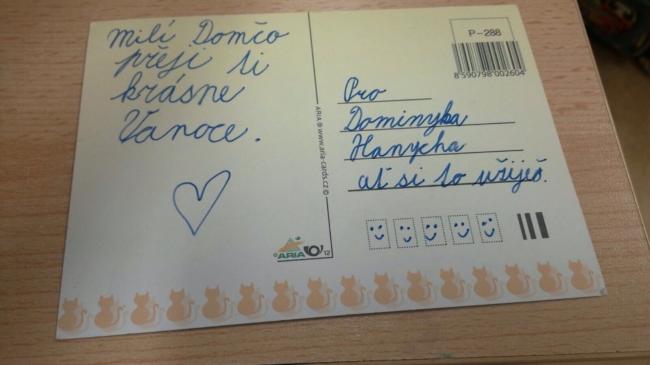 milí Domčo
přeji ti
krásne
Vanoce.
P-288
8 590798 002604
Pro
Dominyka
Hanycha
ať si to užiješ.
ARIA ® www.aria-cards.cz ©
ARIA
12